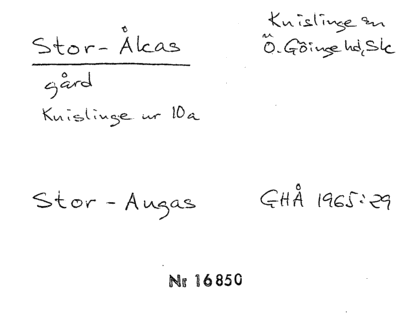 Stor-Åkas
Knislinge sn
Ö. Göinge hd, Sk
gård
Knislinge nr 10a
Stor-Augas
GHÅ 1965:29
Nr 16850